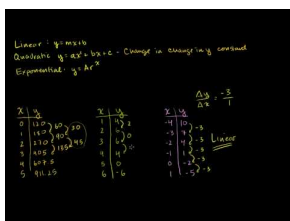 Linear: y=mx+b
Quadratic y=ax²+bx+c - Change in change in y constant
Exponential: y=Ar^x
Δy/Δx = -3/1
x | y
0 | 120
1 | 180
2 | 270
3 | 405
4 | 607.5
5 | 911.25
60
90
135
30
45
x | y
4
6
4
5 | 0
6 | -6
2
x | y
-4 | 10
-3 | 7
-2 | 4
-1 | 1
0 | -2
1 | -5
-3
-3
-3
-3
-3
Linear